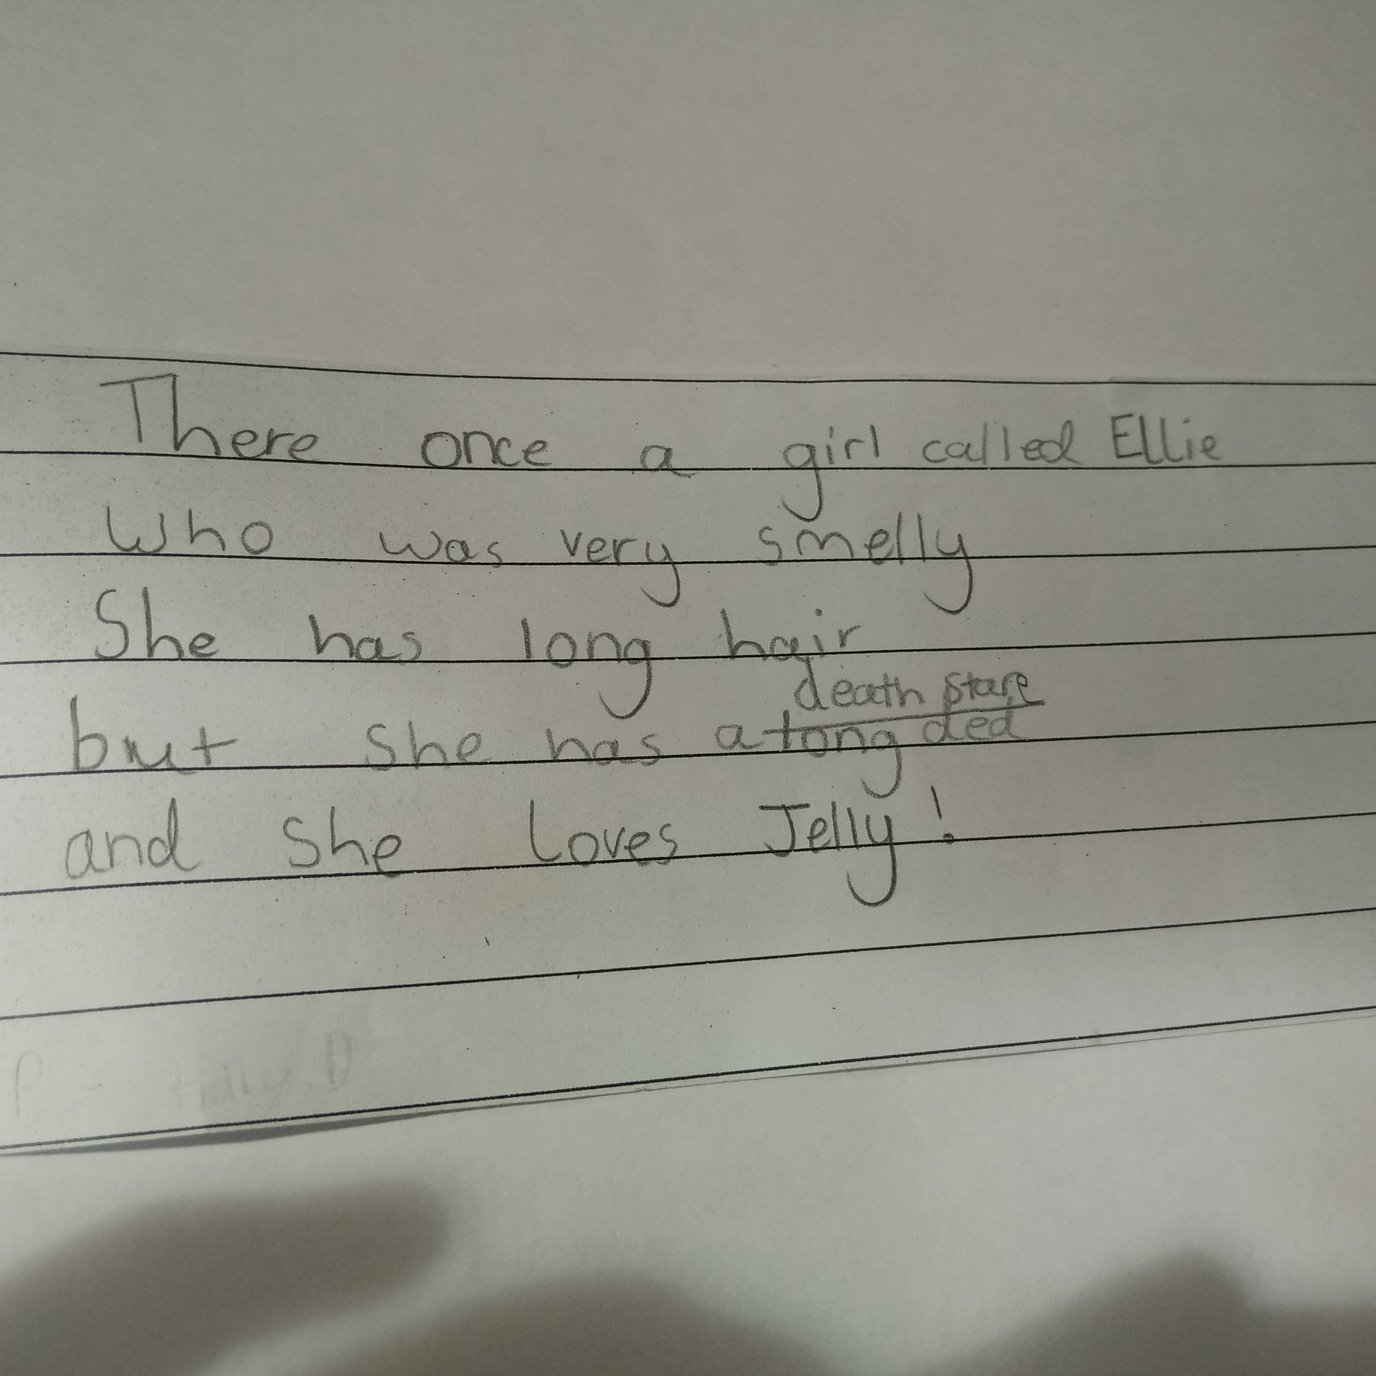 There once a girl called Ellie
Who was very smelly
She has long hair
death stare
but she has a long ded
and she loves Jelly!